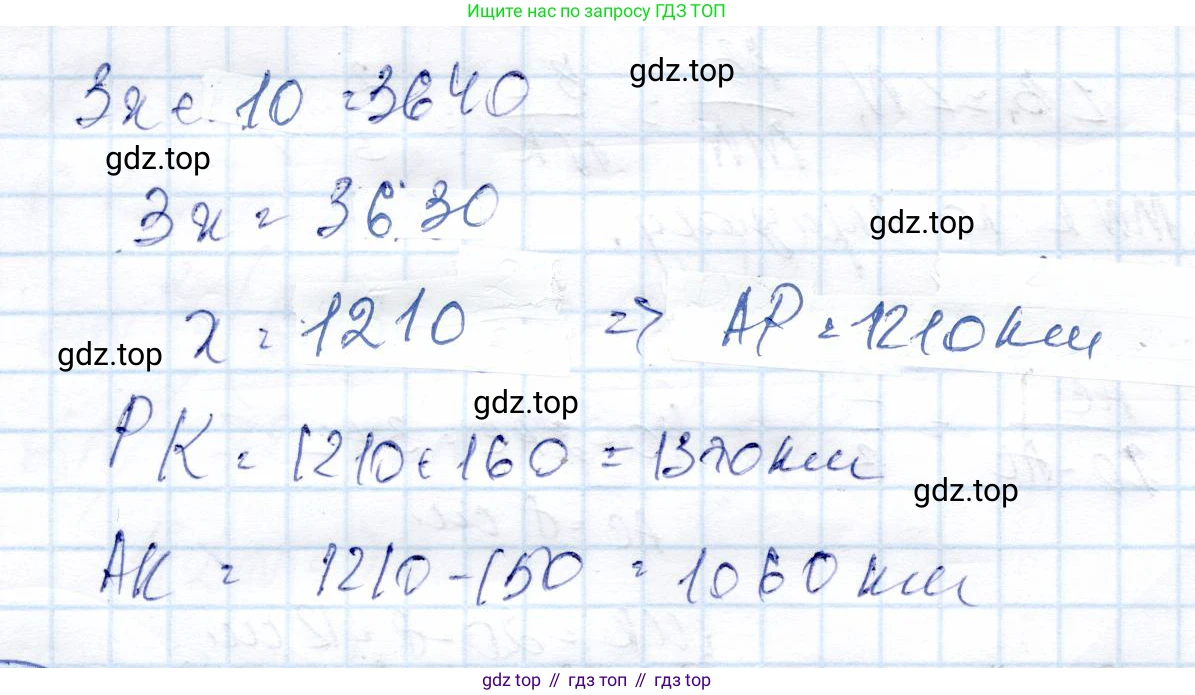 Ищите нас по запросу ГДЗ ТОП
3x + 10 = 3640
gdz.top
gdz.top
3x = 3630
gdz.top
x = 1210 => AP = 1210 км
gdz.top
gdz.top
PK = 1210 + 160 = 1370 км
gdz.top
AK = 1210 - 150 = 1060 км
gdz top // гдз топ // gdz top